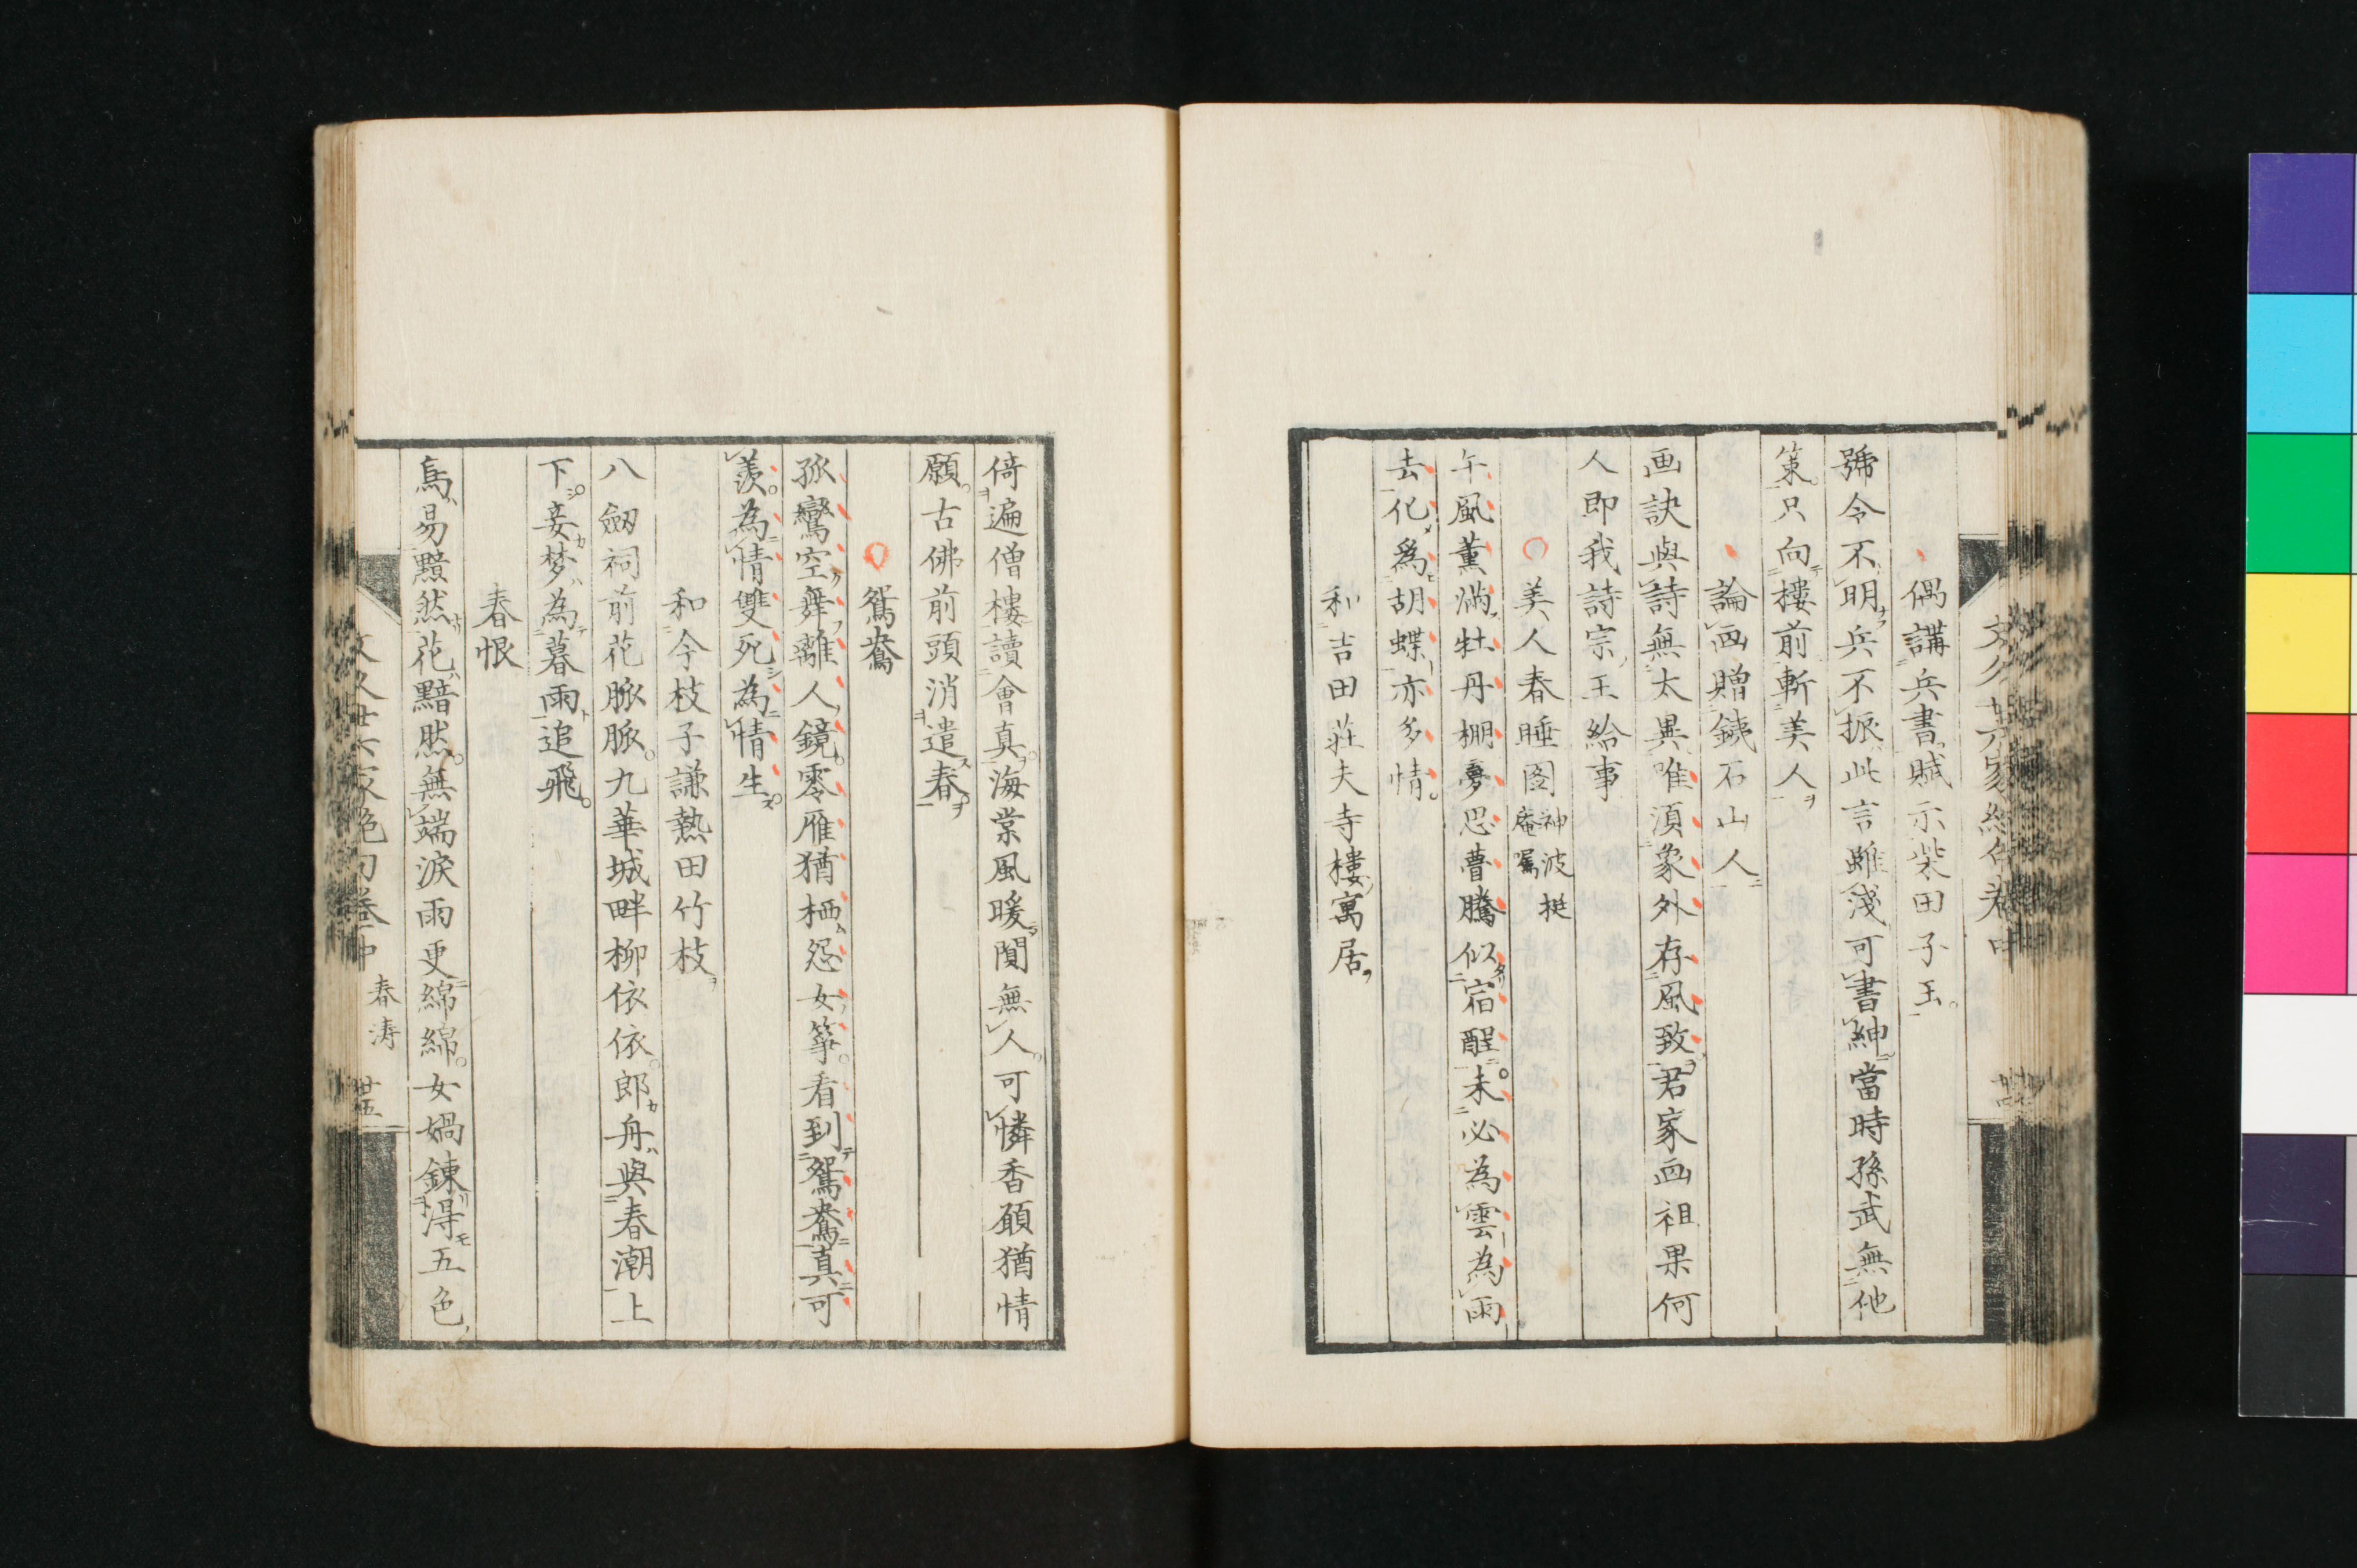 偶講兵書賦示柴田子玉
號令不明兵不振此言雖淺可書紳當時孫武無他
策只向樓前斬美人
論画贈銕石山人
画訣與詩無太異唯須象外存風致君家画祖果何
人即我詩宗王給事
美人春睡圖神波挺庵嘱
午風薰滿牡丹棚夢思瞢騰似宿酲未必為雲為雨
去化爲胡蝶亦多情
和吉田莊夫寺樓寓居
倚遍僧樓讀會真海棠風暖閴無人可憐香願猶情
願古佛前頭消遣春
鴛鴦
孤鸞空舞離人鏡零雁猶栖怨女箏看到鴛鴦真可
羨為情雙死為情生
和今枝子謙熱田竹枝
八劔祠前花脈脈九華城畔柳依依郎舟與春潮上
下妾梦為暮雨追飛
春恨
鳥易黯然花黯然無端淚雨更綿綿女媧鍊得五色
春濤
廿五